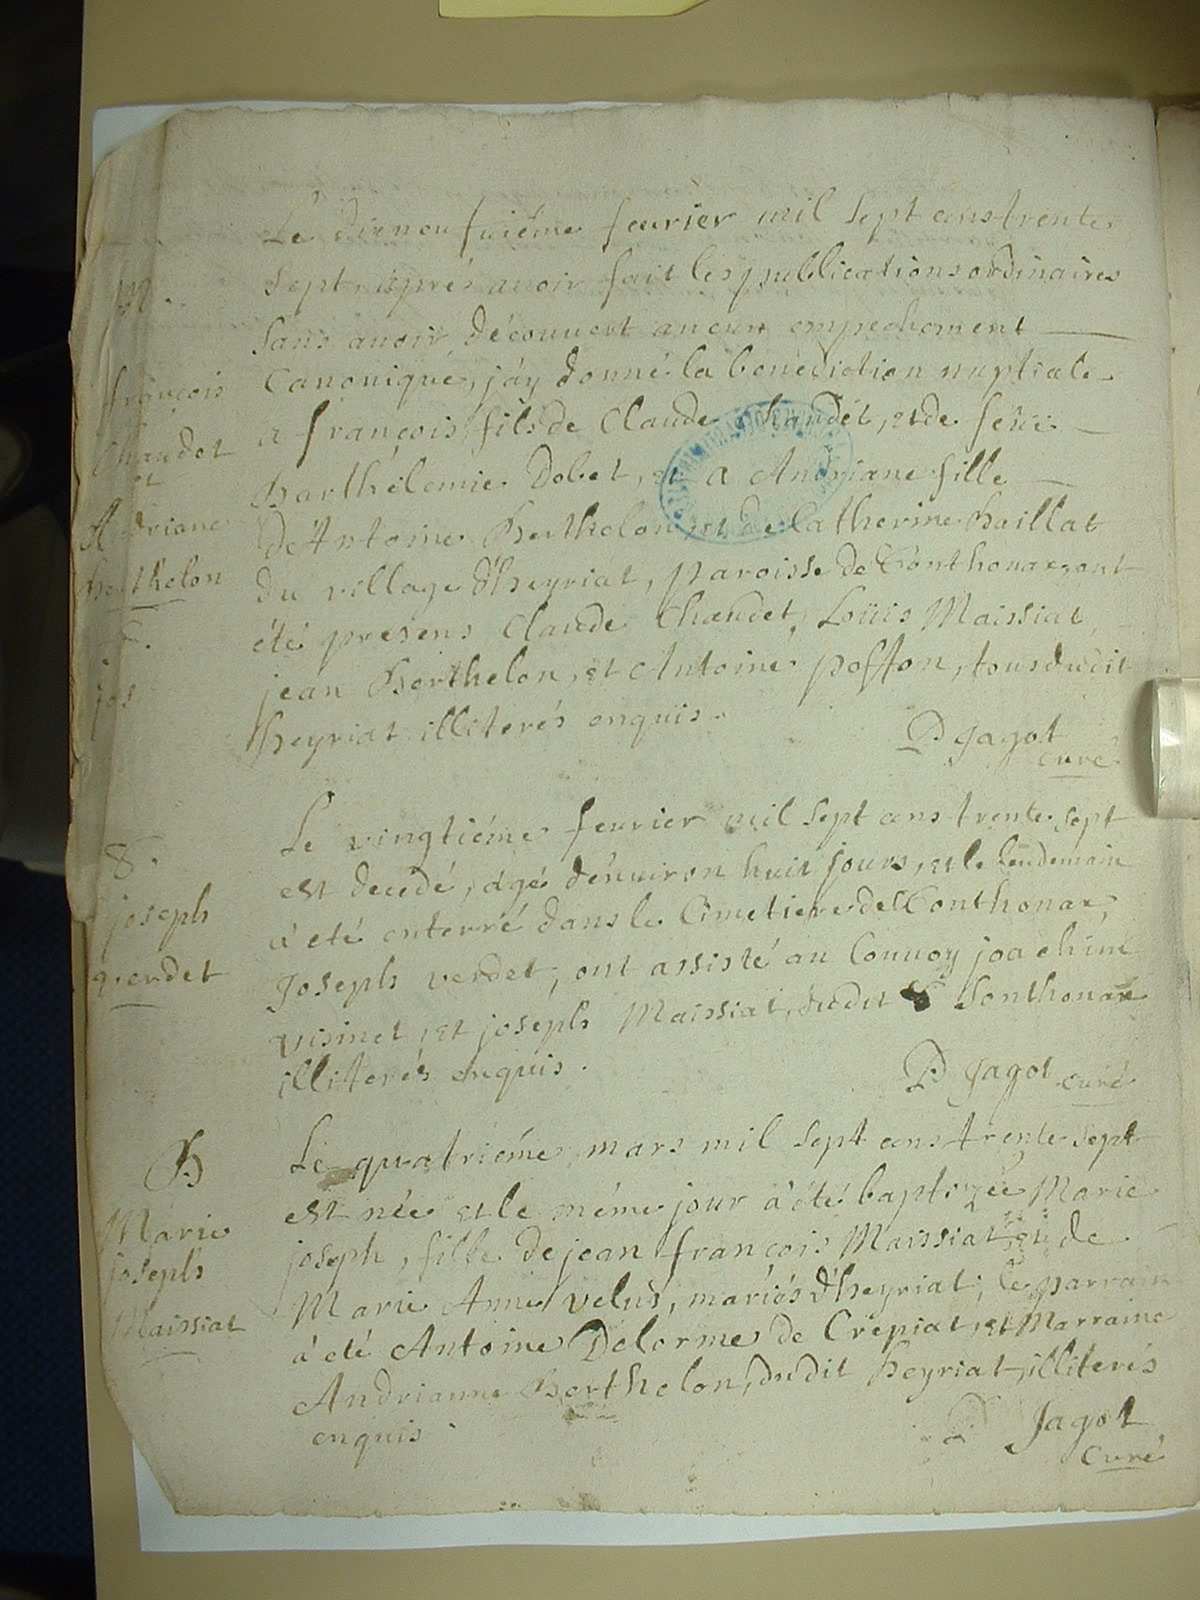 Le dixneufuiéme feurier mil sept cens trente
M.
sept, aprés auoir fait les publications ordinaires
sans auoir découuert aucun empechement
Canonique, j'ay donné la bénédiction nuptiale
françois
Chaudet
et
Andriane
Berthelon
a françois, fils de Claude Chaudet, et de feüe
Barthélemie Dobet, et a Andriane fille
d'Antoine Berthelon, et de Catherine Baillat
du village d'heyriat, paroisse de Conthonax, ont
été presens Claude Chaudet, Loüis Maissiat,
jean Berthelon, et Antoine poffon, tous dudit
jos
heyriat illiterés enquis.
P Jagot
curé
Le vingtiéme feurier mil sept cens trente sept
est decedé, agé d'enuiron huit jours, et le lendemain
a été enterré dans le Cimetiere de Conthonax,
8.
joseph
verdet
Joseph verdet, ont assisté au Conuoy joachim
visinet, et joseph Maissiat, dudit Sonthonax
illiterés enquis.
P Jagot curé
B
Marie
joseph
Maissiat
Le quatriéme mars mil sept cens trente sept
est née et le méme jour a été baptizée Marie
joseph, fille de jean françois Maissiat et de
Marie Anne velus, mariés d'heyriat, le parrain
a été Antoine Delorme de Crepiat, et Marraine
Andrianne Berthelon, dudit heyriat, illiterés
enquis
P Jagot
Curé